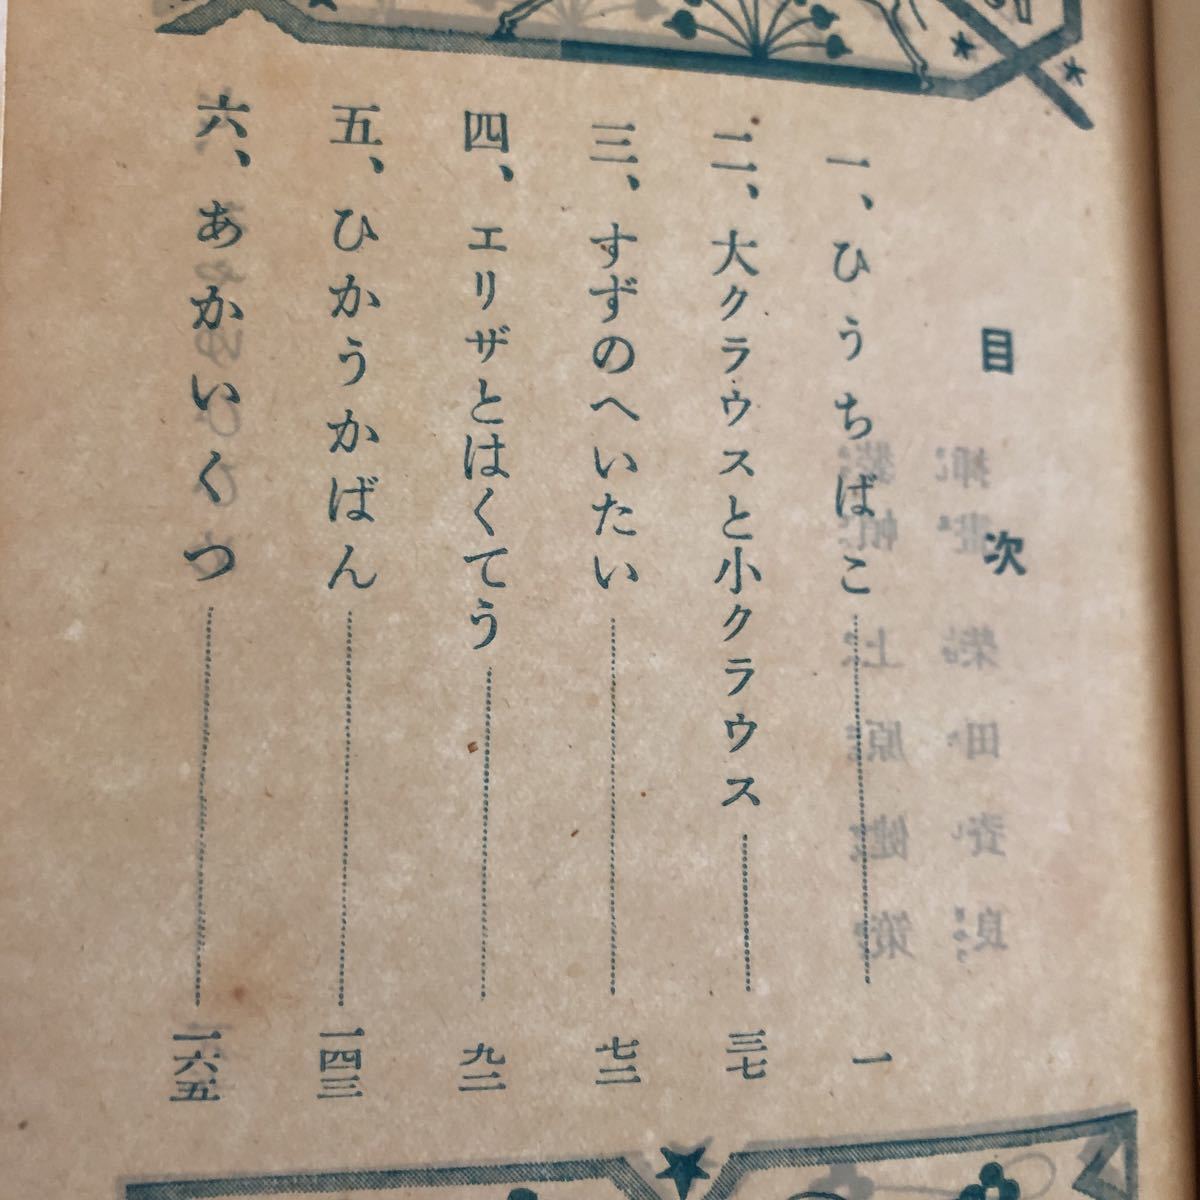 目次
一、ひうちばこ 一
二、大クラウスと小クラウス 三七
三、すずのへいたい 七二
四、エリザとはくてう 九二
五、ひかうかばん 一四三
六、あかいくつ 一六五
挿畫 柴田 良
装幀 上原健策